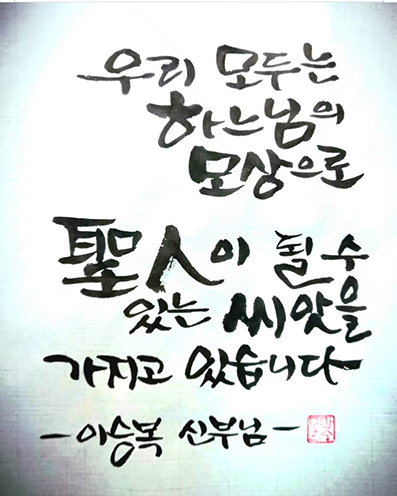 우리 모두는
하느님의
모상으로
聖人이 될 수
있는 씨앗을
가지고 있습니다
-이승복 신부님-